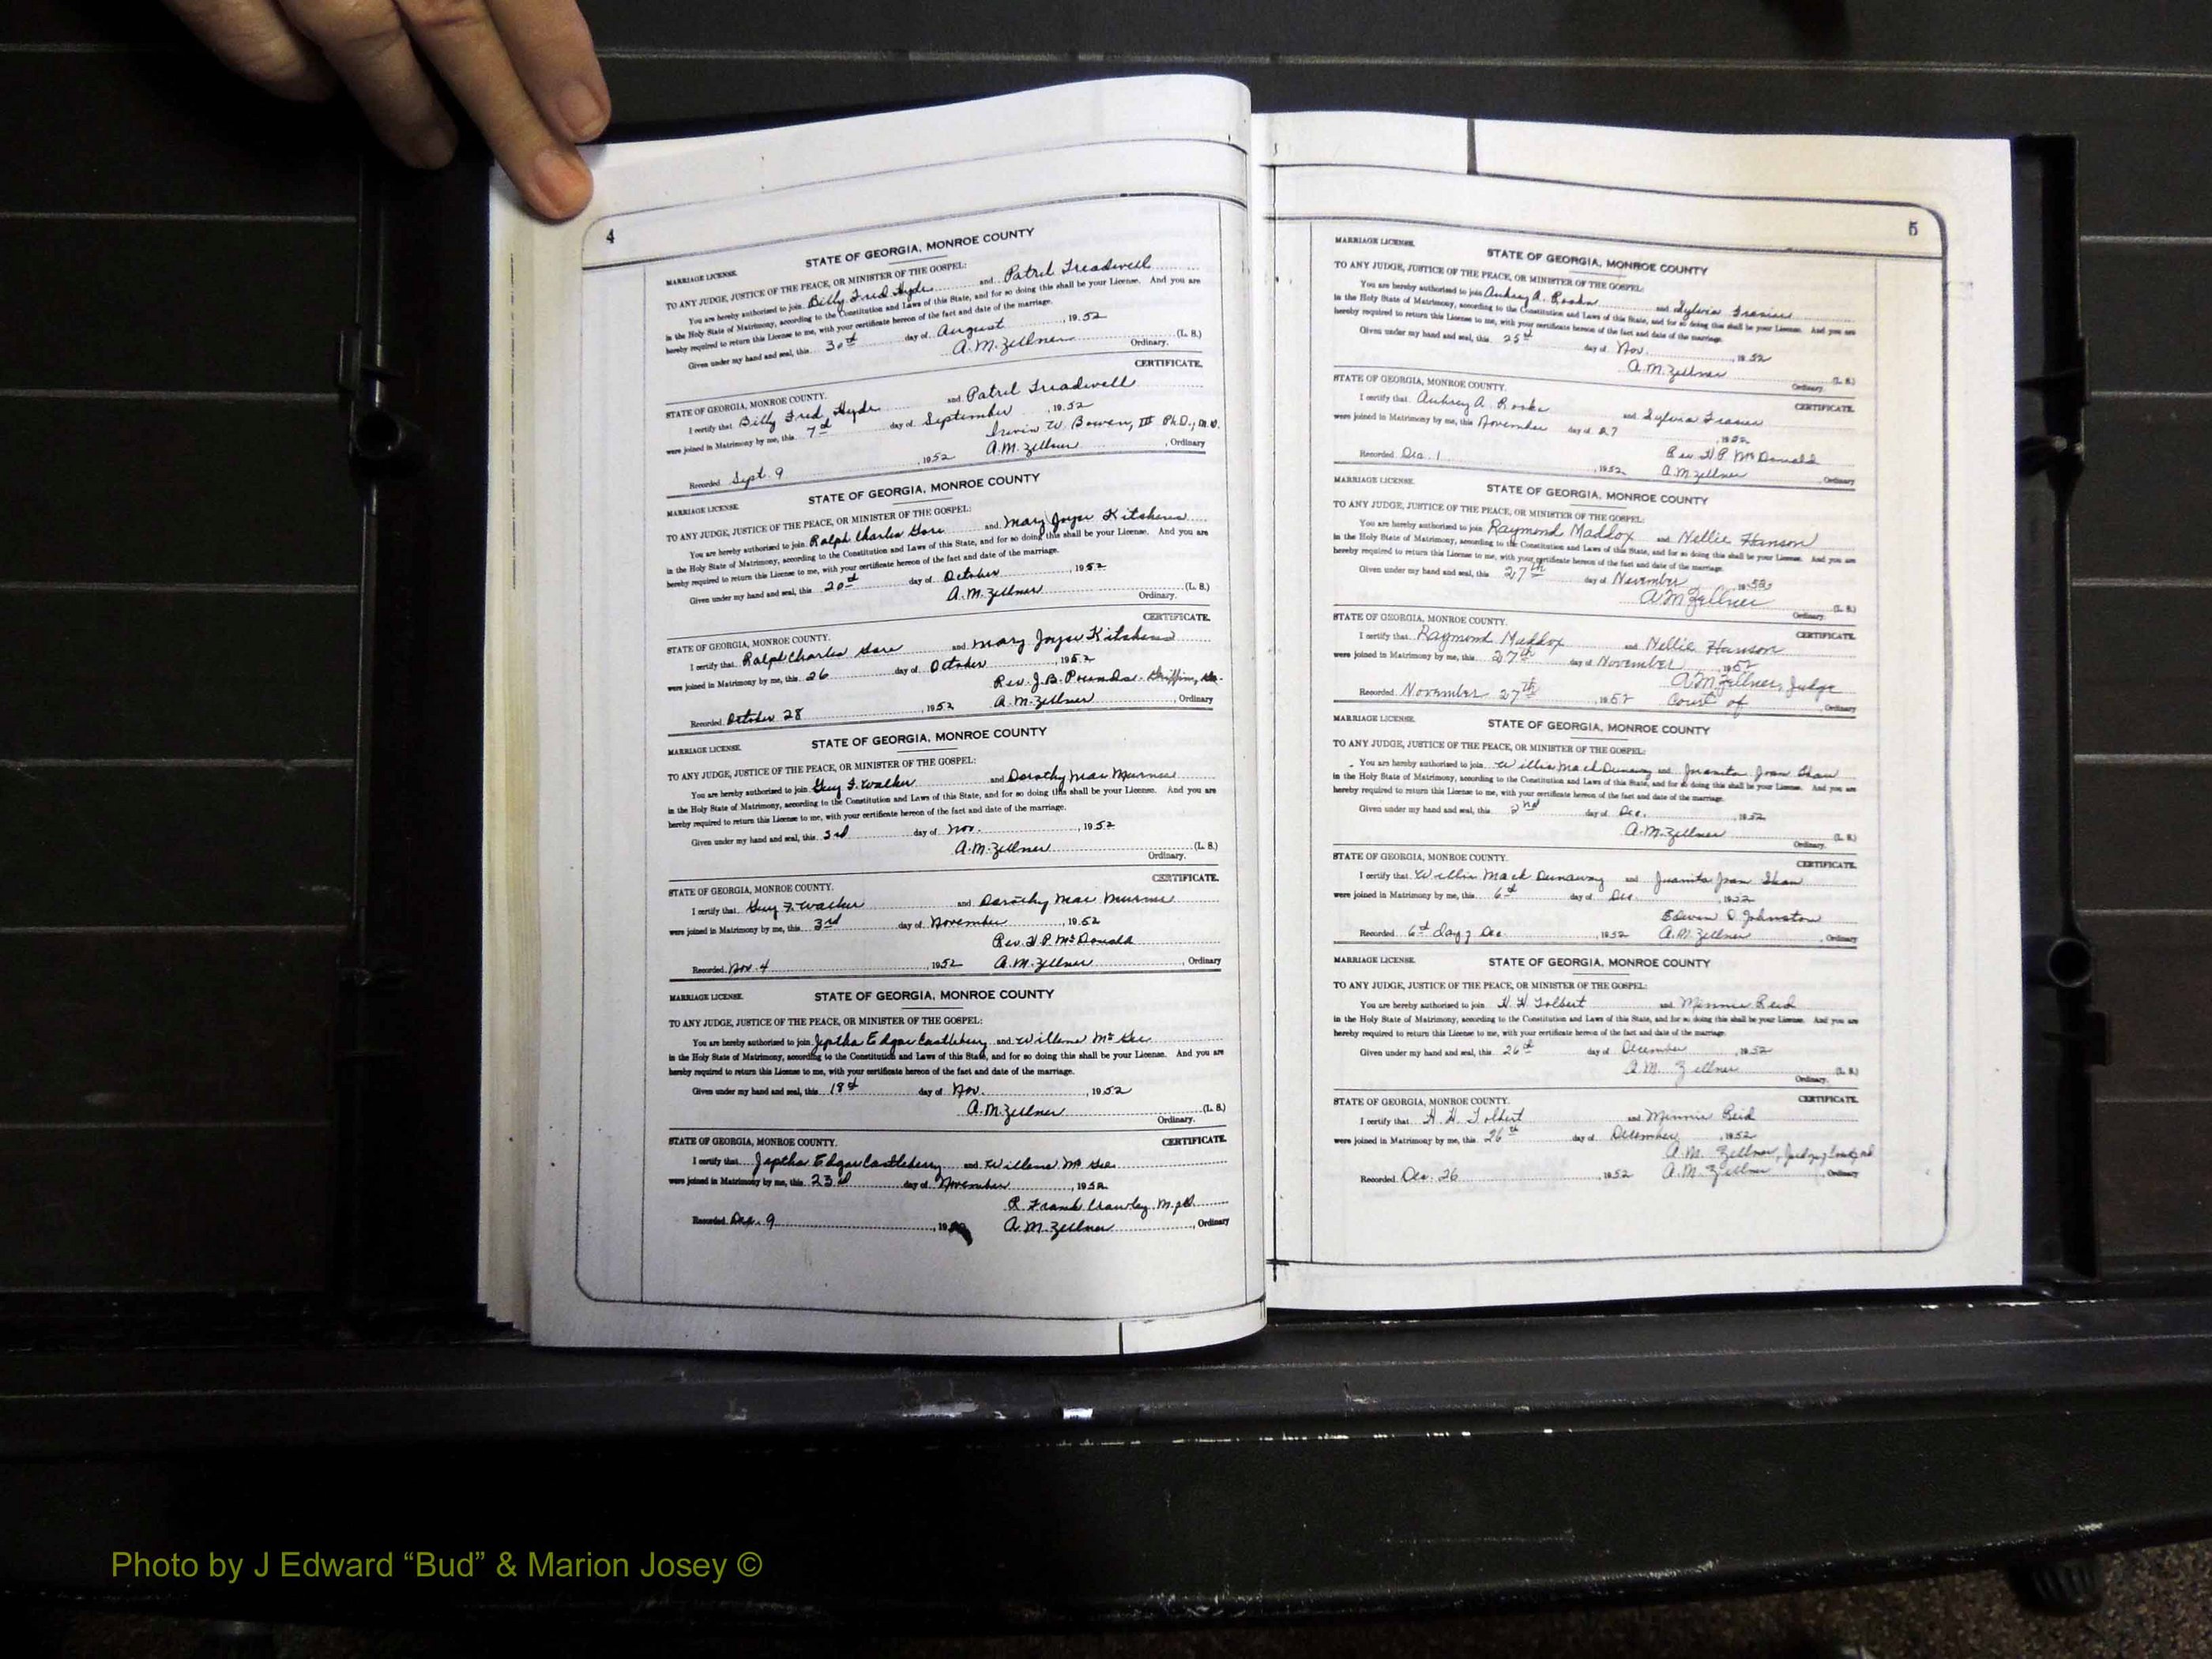 4
STATE OF GEORGIA, MONROE COUNTY
MARRIAGE LICENSE.
TO ANY JUDGE, JUSTICE OF THE PEACE, OR MINISTER OF THE GOSPEL:
You are hereby authorized to join Billy Fred Hyde and Patril Treadwell
in the Holy State of Matrimony, according to the Constitution and Laws of this State, and for so doing this shall be your License. And you are
hereby required to return this License to me, with your certificate hereon of the fact and date of the marriage.
Given under my hand and seal, this 30th day of August, 1952
A.M. Zellner (L. S.)
Ordinary.
CERTIFICATE.
STATE OF GEORGIA, MONROE COUNTY.
I certify that Billy Fred Hyde and Patril Treadwell
were joined in Matrimony by me, this 7th day of September, 1952
Irvin W. Bowen, III Ph.D., M.D.
Recorded Sept. 9, 1952 A.M. Zellner, Ordinary
STATE OF GEORGIA, MONROE COUNTY
MARRIAGE LICENSE.
TO ANY JUDGE, JUSTICE OF THE PEACE, OR MINISTER OF THE GOSPEL:
You are hereby authorized to join Ralph Charles Gore and Mary Joyce Kitchens
in the Holy State of Matrimony, according to the Constitution and Laws of this State, and for so doing this shall be your License. And you are
hereby required to return this License to me, with your certificate hereon of the fact and date of the marriage.
Given under my hand and seal, this 20th day of October, 1952
A.M. Zellner (L. S.)
Ordinary.
CERTIFICATE.
STATE OF GEORGIA, MONROE COUNTY.
I certify that Ralph Charles Gore and Mary Joyce Kitchens
were joined in Matrimony by me, this 26 day of October, 1952
Rev. J.B. Pounds - Griffin, Ga.
Recorded October 28, 1952 A.M. Zellner, Ordinary
STATE OF GEORGIA, MONROE COUNTY
MARRIAGE LICENSE.
TO ANY JUDGE, JUSTICE OF THE PEACE, OR MINISTER OF THE GOSPEL:
You are hereby authorized to join Guy F. Walker and Dorothy Mae
in the Holy State of Matrimony, according to the Constitution and Laws of this State, and for so doing this shall be your License. And you are
hereby required to return this License to me, with your certificate hereon of the fact and date of the marriage.
Given under my hand and seal, this 3rd day of Nov., 1952
A.M. Zellner (L. S.)
Ordinary.
CERTIFICATE.
STATE OF GEORGIA, MONROE COUNTY.
I certify that Guy F. Walker and Dorothy Mae
were joined in Matrimony by me, this 3rd day of November, 1952
Rev. H.P. McDonald
Recorded Nov. 4, 1952 A.M. Zellner, Ordinary
MARRIAGE LICENSE. STATE OF GEORGIA, MONROE COUNTY
TO ANY JUDGE, JUSTICE OF THE PEACE, OR MINISTER OF THE GOSPEL:
You are hereby authorized to join Jeptha Edgar Castleberry and Willene McGee
in the Holy State of Matrimony, according to the Constitution and Laws of this State, and for so doing this shall be your License. And you are
hereby required to return this License to me, with your certificate hereon of the fact and date of the marriage.
Given under my hand and seal, this 18th day of Nov., 1952
A.M. Zellner (L. S.)
Ordinary.
STATE OF GEORGIA, MONROE COUNTY. CERTIFICATE.
I certify that Jeptha Edgar Castleberry and Willene McGee
were joined in Matrimony by me, this 23rd day of November, 1952
R. Frank Crawley M.gd.
Recorded Dec. 9, 19 A.M. Zellner, Ordinary
5
MARRIAGE LICENSE. STATE OF GEORGIA, MONROE COUNTY
TO ANY JUDGE, JUSTICE OF THE PEACE, OR MINISTER OF THE GOSPEL:
You are hereby authorized to join Aubrey A. Rooks and Sylvia Frasier
in the Holy State of Matrimony, according to the Constitution and Laws of this State, and for so doing this shall be your License. And you are
hereby required to return this License to me, with your certificate hereon of the fact and date of the marriage.
Given under my hand and seal, this 25th day of Nov., 1952
A.M. Zellner (L. S.)
Ordinary.
STATE OF GEORGIA, MONROE COUNTY. CERTIFICATE.
I certify that Aubrey A. Rooks and Sylvia Frasier
were joined in Matrimony by me, this November day of 27, 1952
Rev. H.P. McDonald
Recorded Dec. 1, 1952 A.M. Zellner, Ordinary
MARRIAGE LICENSE. STATE OF GEORGIA, MONROE COUNTY
TO ANY JUDGE, JUSTICE OF THE PEACE, OR MINISTER OF THE GOSPEL:
You are hereby authorized to join Raymond Maddox and Nellie Hanson
in the Holy State of Matrimony, according to the Constitution and Laws of this State, and for so doing this shall be your License. And you are
hereby required to return this License to me, with your certificate hereon of the fact and date of the marriage.
Given under my hand and seal, this 27th day of November 1952
A.M. Zellner (L. S.)
Ordinary.
STATE OF GEORGIA, MONROE COUNTY. CERTIFICATE.
I certify that Raymond Maddox and Nellie Hanson
were joined in Matrimony by me, this 27th day of November, 1952
A.M. Zellner, Judge
Recorded November 27th, 1952 Court of, Ordinary
MARRIAGE LICENSE. STATE OF GEORGIA, MONROE COUNTY
TO ANY JUDGE, JUSTICE OF THE PEACE, OR MINISTER OF THE GOSPEL:
You are hereby authorized to join Willie Mack Dunaway and Juanita Joan Shaw
in the Holy State of Matrimony, according to the Constitution and Laws of this State, and for so doing this shall be your License. And you are
hereby required to return this License to me, with your certificate hereon of the fact and date of the marriage.
Given under my hand and seal, this 2nd day of Dec., 1952
A.M. Zellner (L. S.)
Ordinary.
STATE OF GEORGIA, MONROE COUNTY. CERTIFICATE.
I certify that Willie Mack Dunaway and Juanita Joan Shaw
were joined in Matrimony by me, this 6th day of Dec., 1952
Edwin D. Johnston
Recorded 6th day of Dec., 1952 A.M. Zellner, Ordinary
MARRIAGE LICENSE. STATE OF GEORGIA, MONROE COUNTY
TO ANY JUDGE, JUSTICE OF THE PEACE, OR MINISTER OF THE GOSPEL:
You are hereby authorized to join H. H. Tolbert and Minnie Reid
in the Holy State of Matrimony, according to the Constitution and Laws of this State, and for so doing this shall be your License. And you are
hereby required to return this License to me, with your certificate hereon of the fact and date of the marriage.
Given under my hand and seal, this 26th day of December, 1952
A.M. Zellner (L. S.)
Ordinary.
STATE OF GEORGIA, MONROE COUNTY. CERTIFICATE.
I certify that H. H. Tolbert and Minnie Reid
were joined in Matrimony by me, this 26th day of December, 1952
A.M. Zellner, Judge
Recorded Dec. 26, 1952 A.M. Zellner, Ordinary
Photo by J Edward “Bud” & Marion Josey ©